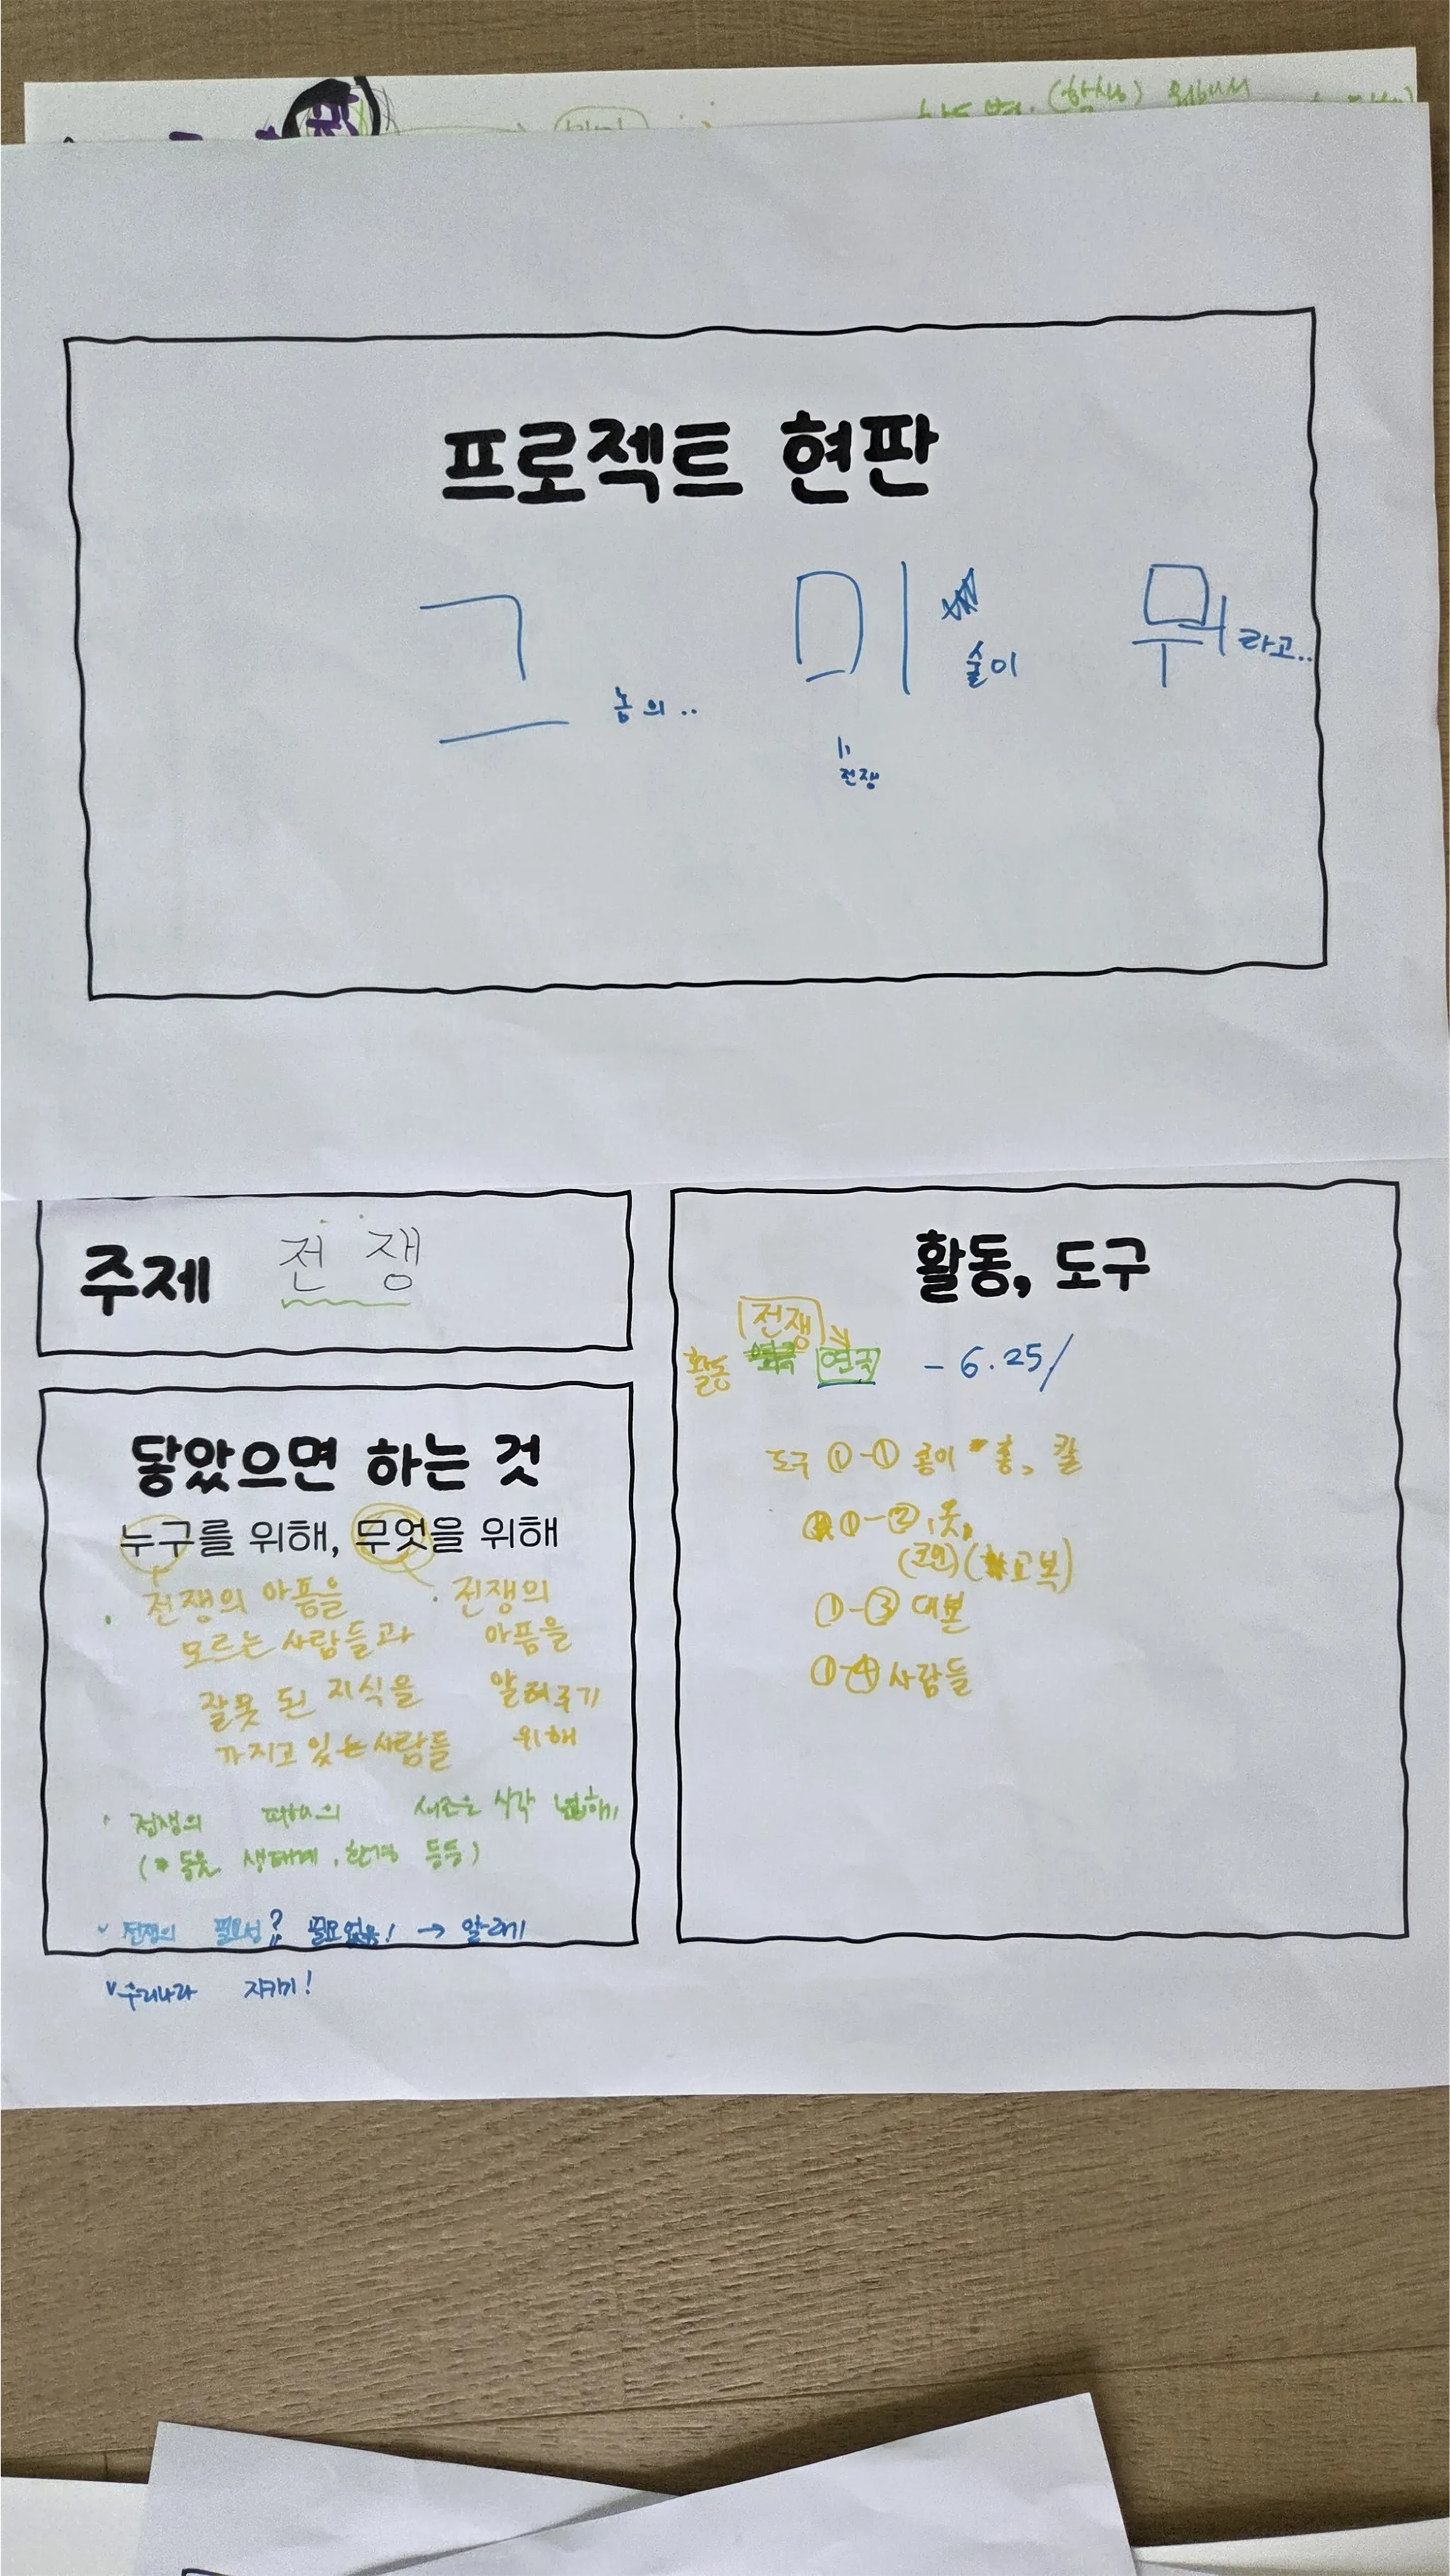 프로젝트 현판
그 놈의.. 미술이 뭐라고..
전쟁
주제 전쟁
닿았으면 하는 것
누구를 위해, 무엇을 위해
전쟁의 아픔을
모르는 사람들과
잘못 된 지식을
가지고 있는 사람들
전쟁의
아픔을
알려주기
위해
전쟁의 피해의 새로운 시각 넓히기
(동물 생태계, 환경 등등)
전쟁의 필요성? 필요없음! → 알리기
우리나라 지키기!
활동, 도구
전쟁
활동 연극 - 6.25/
도구 ①-① 종이 총, 칼
①-② 옷,
(군인) (고복)
①-③ 대본
①-④ 사람들